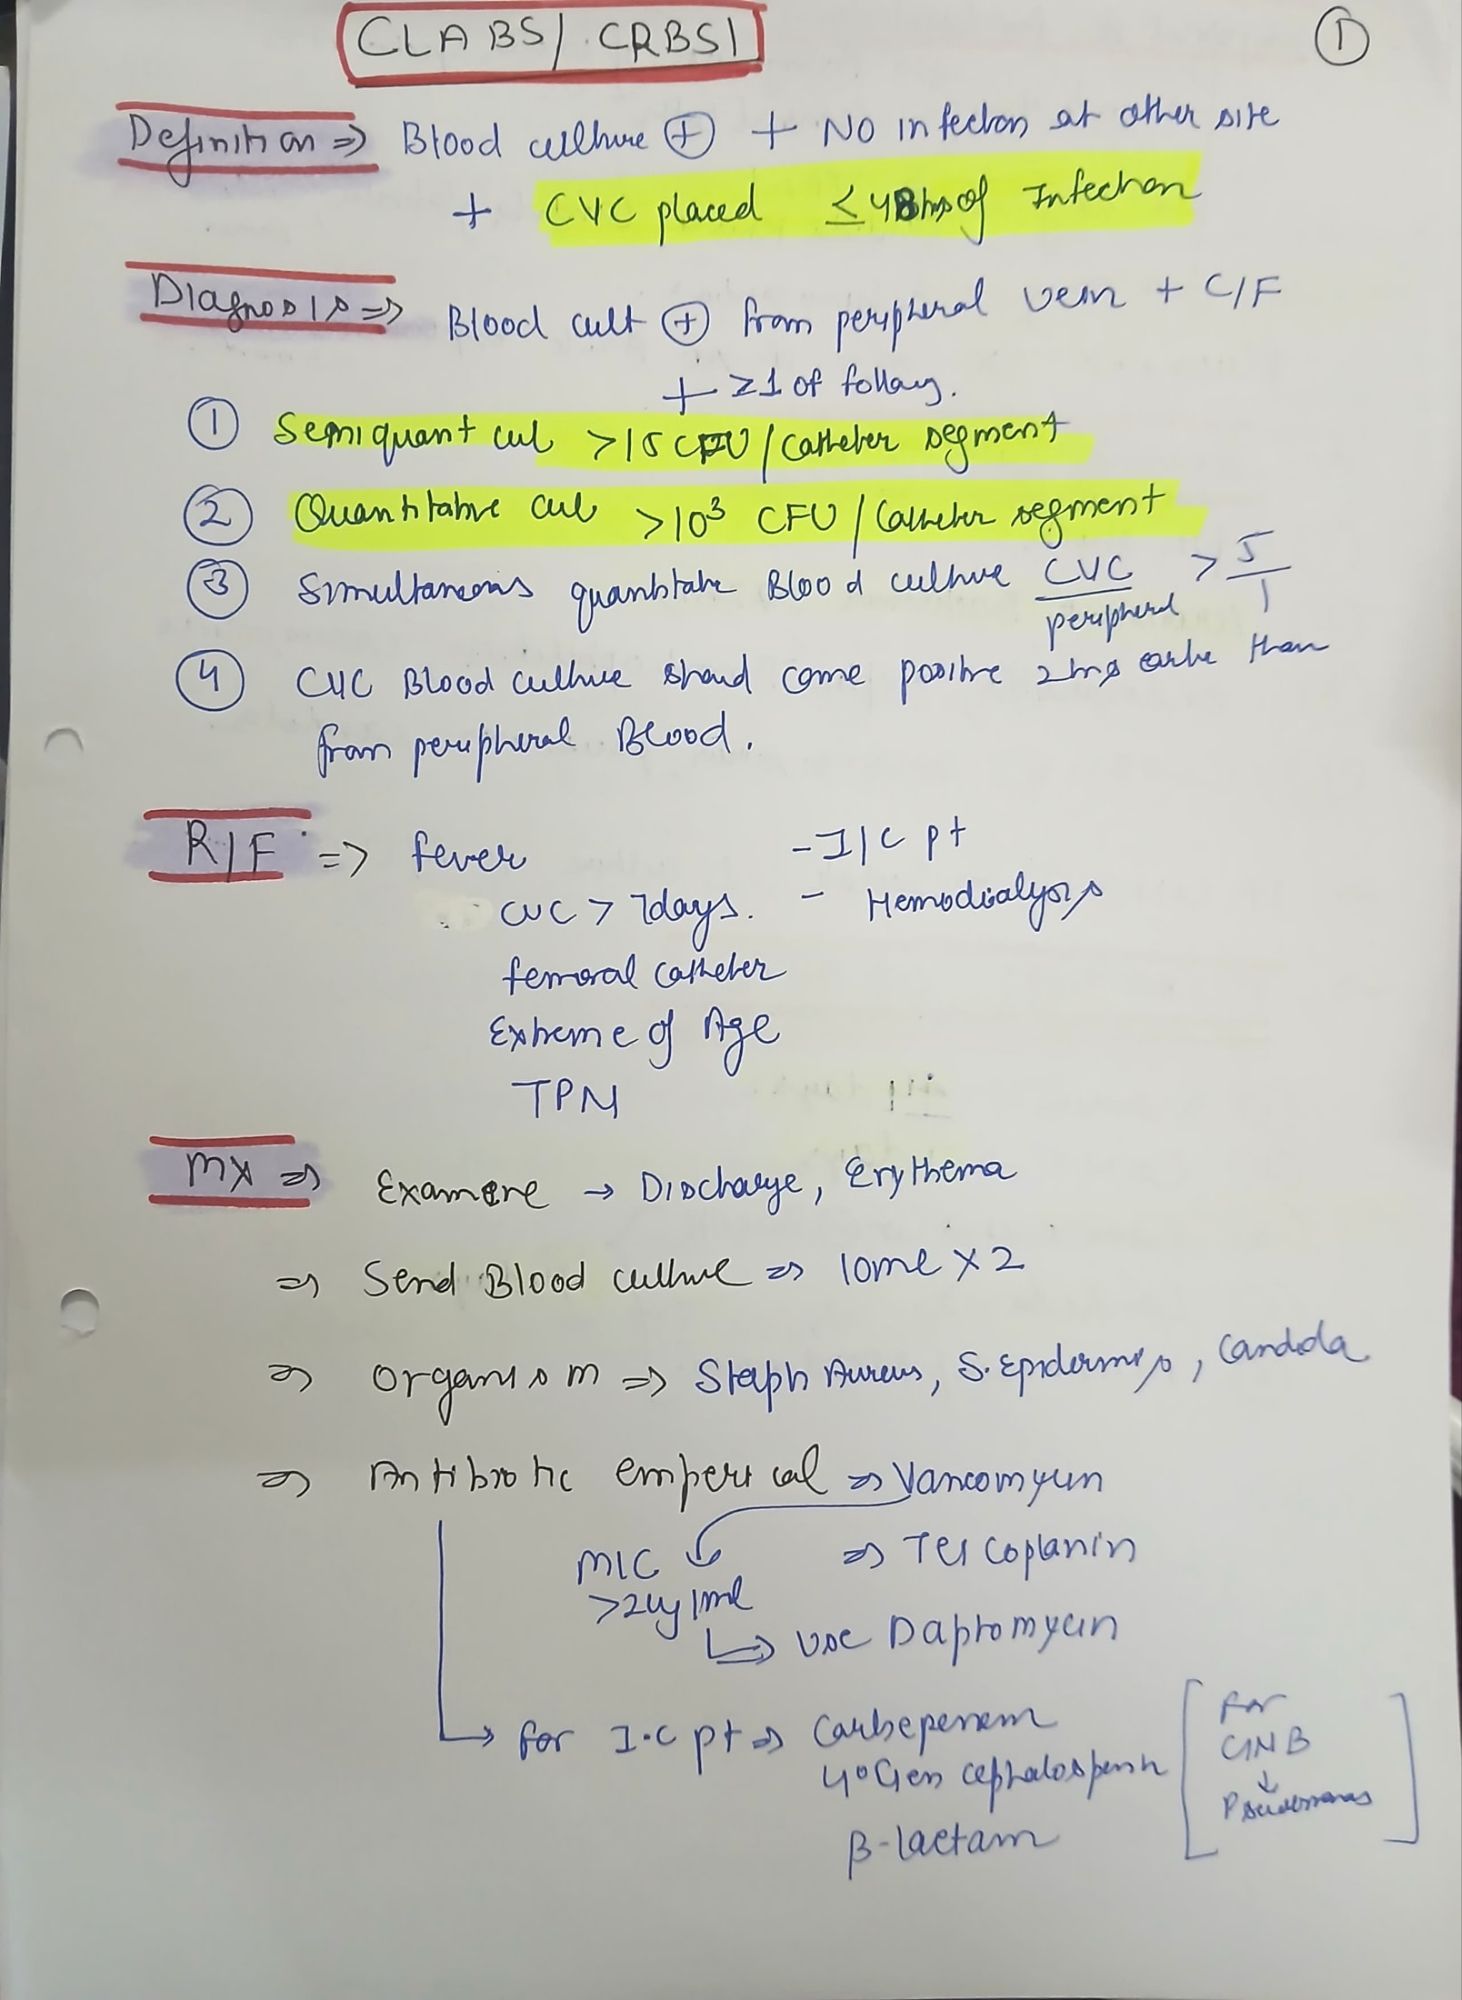 CLABSI/ CRBSI
①
Definition ⇒ Blood culture ⊕ + NO infection at other site
+ CVC placed ≤ 48hrs of Infection
Diagnosis ⇒ Blood cult ⊕ from peripheral vein + C/F
+ ≥1 of following.
① Semiquant cul >15 CFU / catheter segment
② Quantitative cul >10³ CFU / Catheter segment
③ Simultaneous quantitative Blood culture CVC/peripheral > 5/1
④ CVC Blood culture shoud come positive 2hrs earlier than
from peripheral Blood.
R/F ⇒ fever - I/C pt
CVC > 7days. - Hemodialysis
femoral catheter
Extreme of Age
TPN
MX ⇒ Examine → Discharge, Erythema
⇒ Send Blood culture ⇒ 10ml X 2
⇒ Organism ⇒ Staph Aureus, S. Epidermis, Candida
⇒ Antibiotic emperical ⇒ Vancomycin
MIC ⇒ Teicoplanin
>2ug/ml
↳ use Daptomycin
→ for I.C pt ⇒ Carbepenem
4° Gen cephalosporin
β-lactam
[ For
GNB
↓
Pseudomonas ]